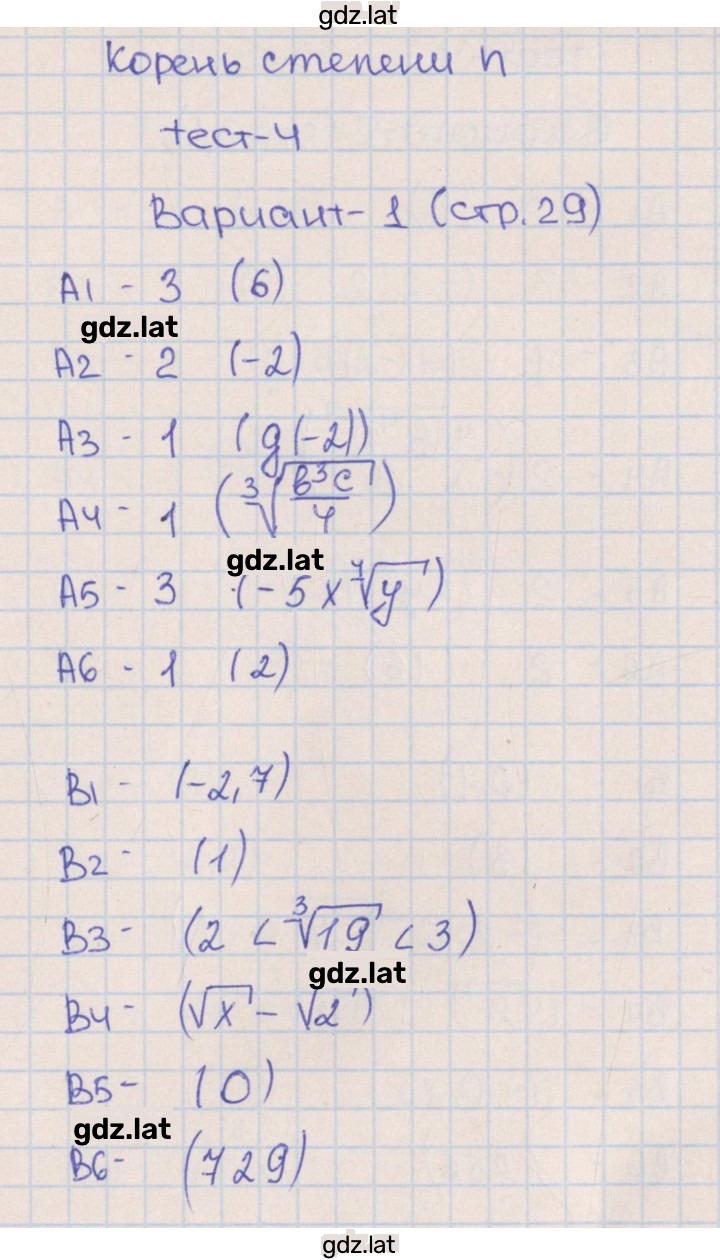 gdz.lat
Корень степени n
тест-4
Вариант-1 (стр.29)
А1 - 3 (6)
gdz.lat
А2 - 2 (-2)
А3 - 1 (g(-2))
А4 - 1 (∛(b³c/4))
gdz.lat
А5 - 3 (-5x⁷√y)
А6 - 1 (2)
В1 - (-2,7)
В2 - (1)
В3 - (2 < ∛19 < 3)
gdz.lat
В4 - (√x - √2)
В5 - (0)
gdz.lat
В6 - (729)
gdz.lat